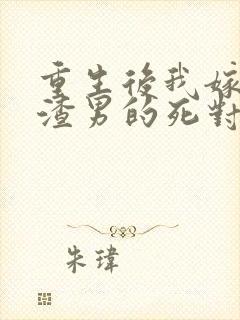 重生後我嫁
渣男的死對
朱瑋